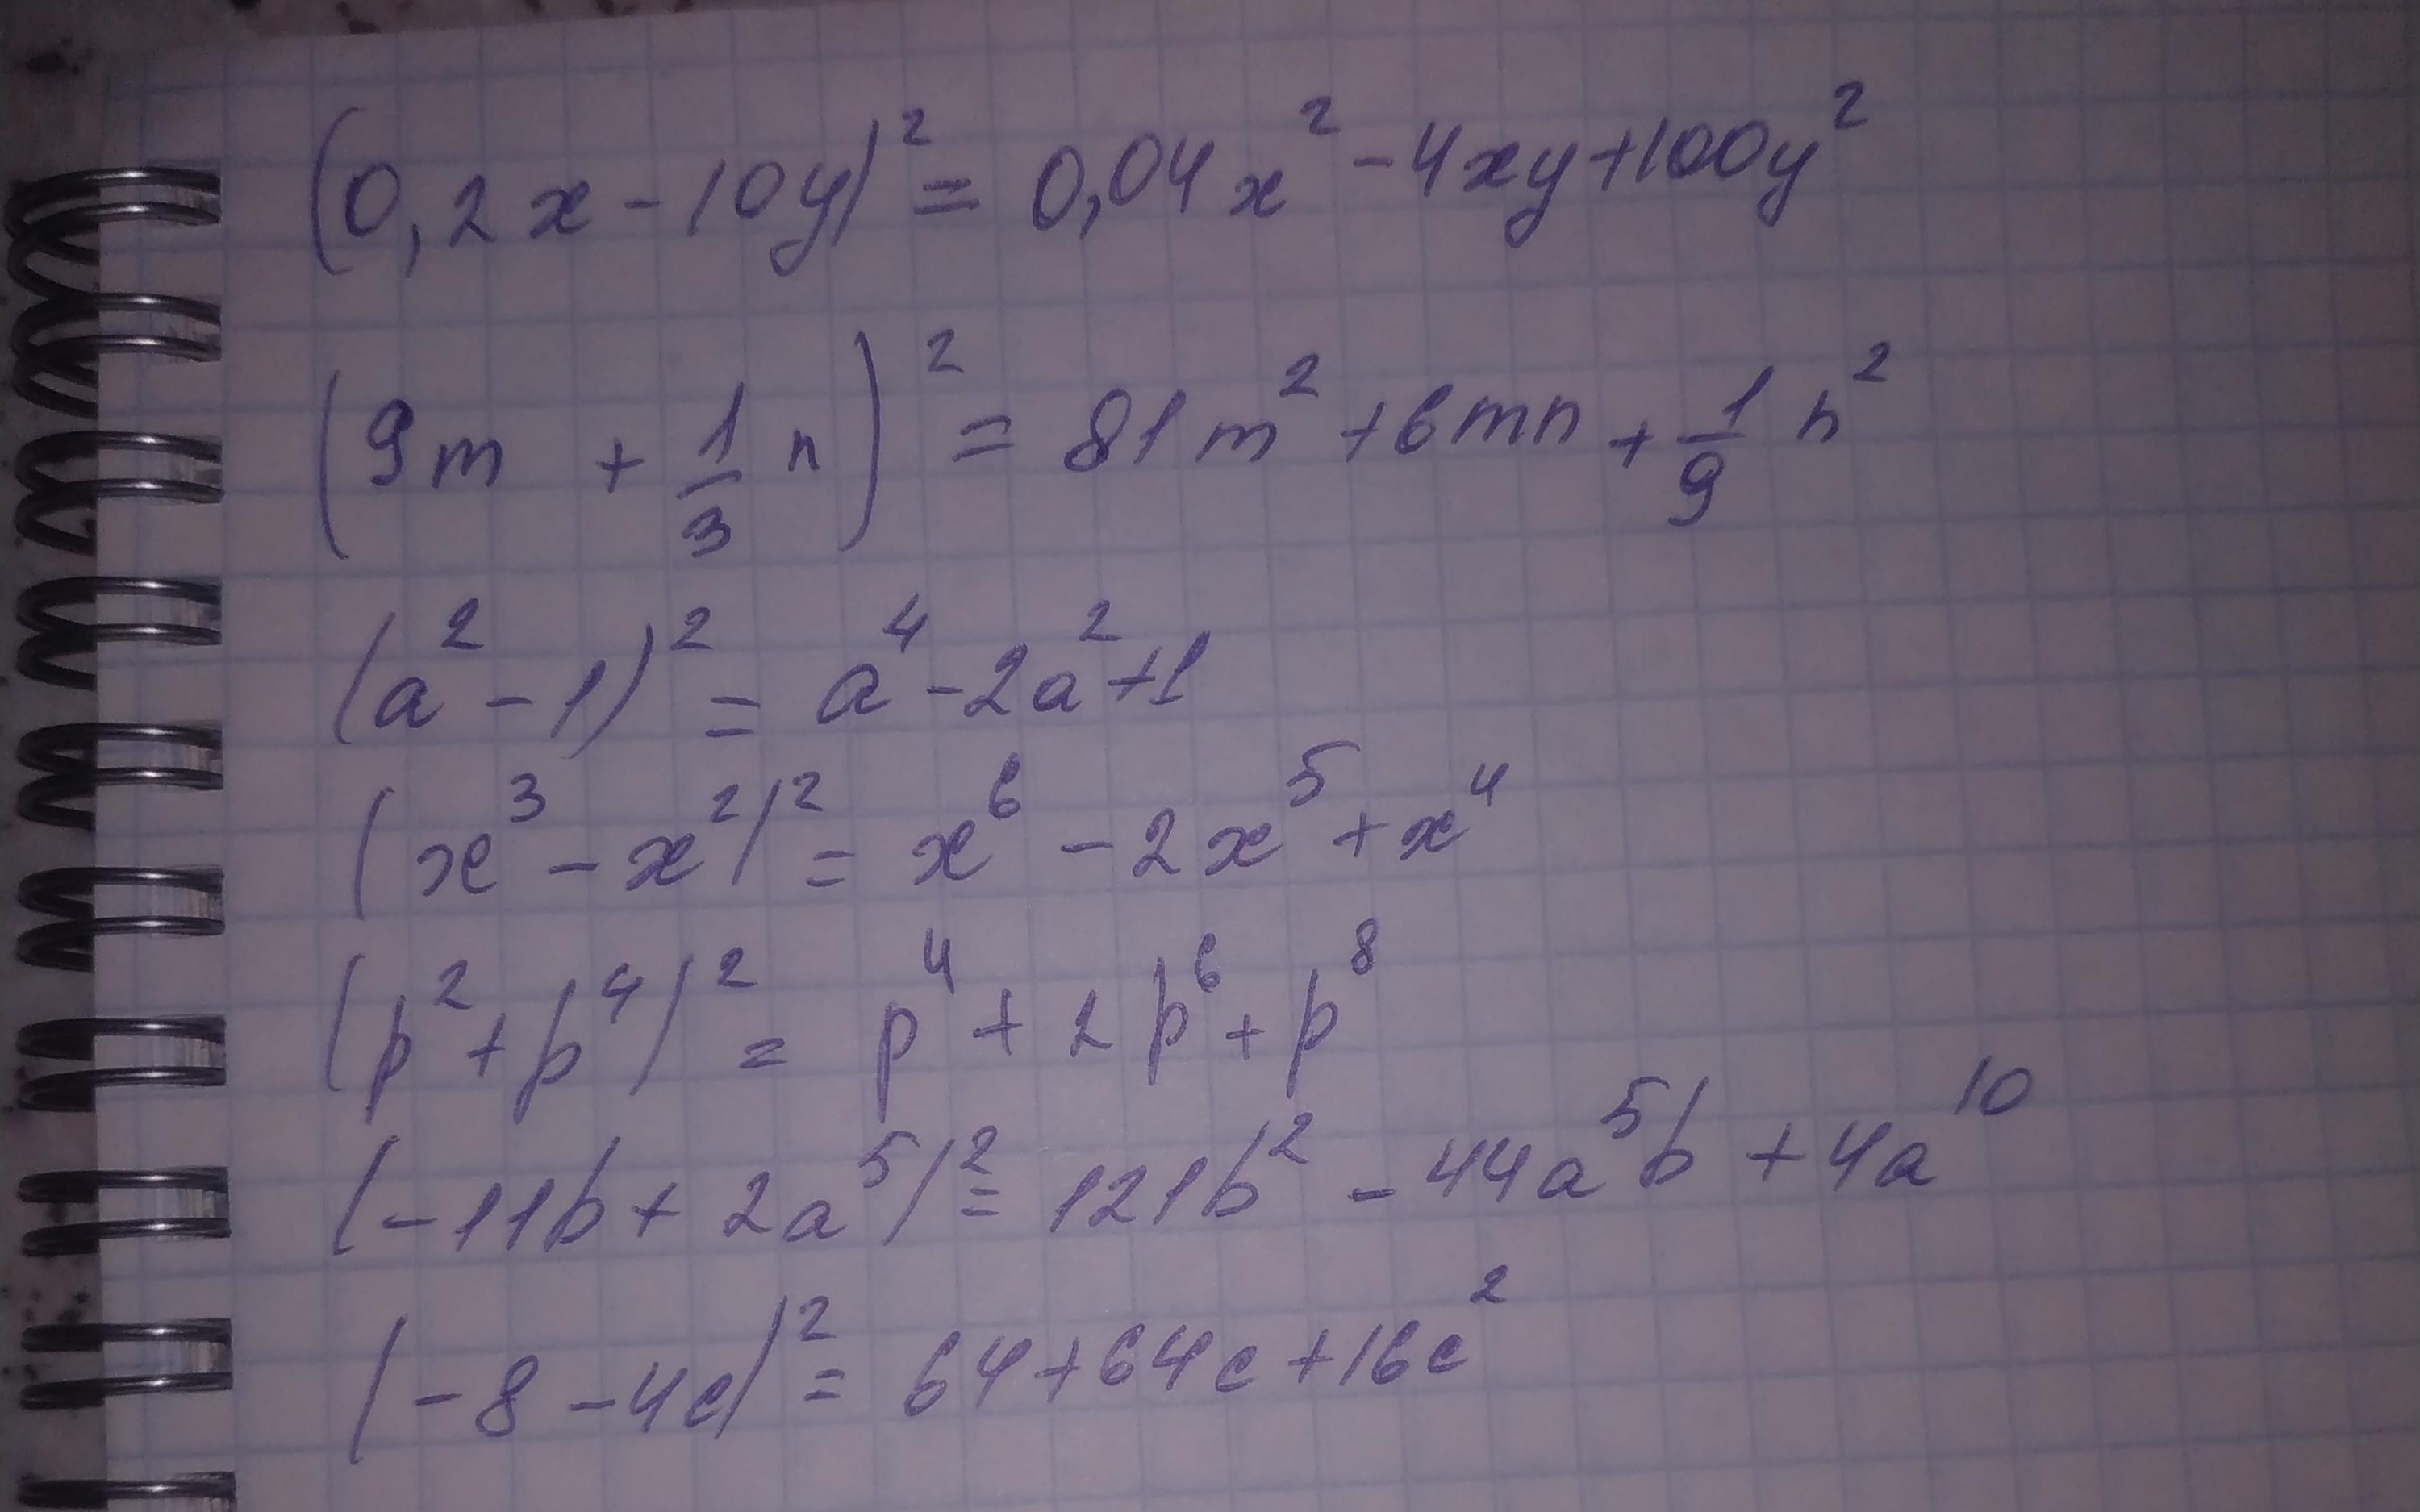 (0,2x - 10y)² = 0,04x² - 4xy + 100y²
(9m + 1/3 n)² = 81m² + 6mn + 1/9 n²
(a² - 1)² = a⁴ - 2a² + 1
(x³ - x²)² = x⁶ - 2x⁵ + x⁴
(p² + p⁴)² = p⁴ + 2p⁶ + p⁸
(-11b + 2a⁵)² = 121b² - 44a⁵b + 4a¹⁰
(-8 - 4c)² = 64 + 64c + 16c²